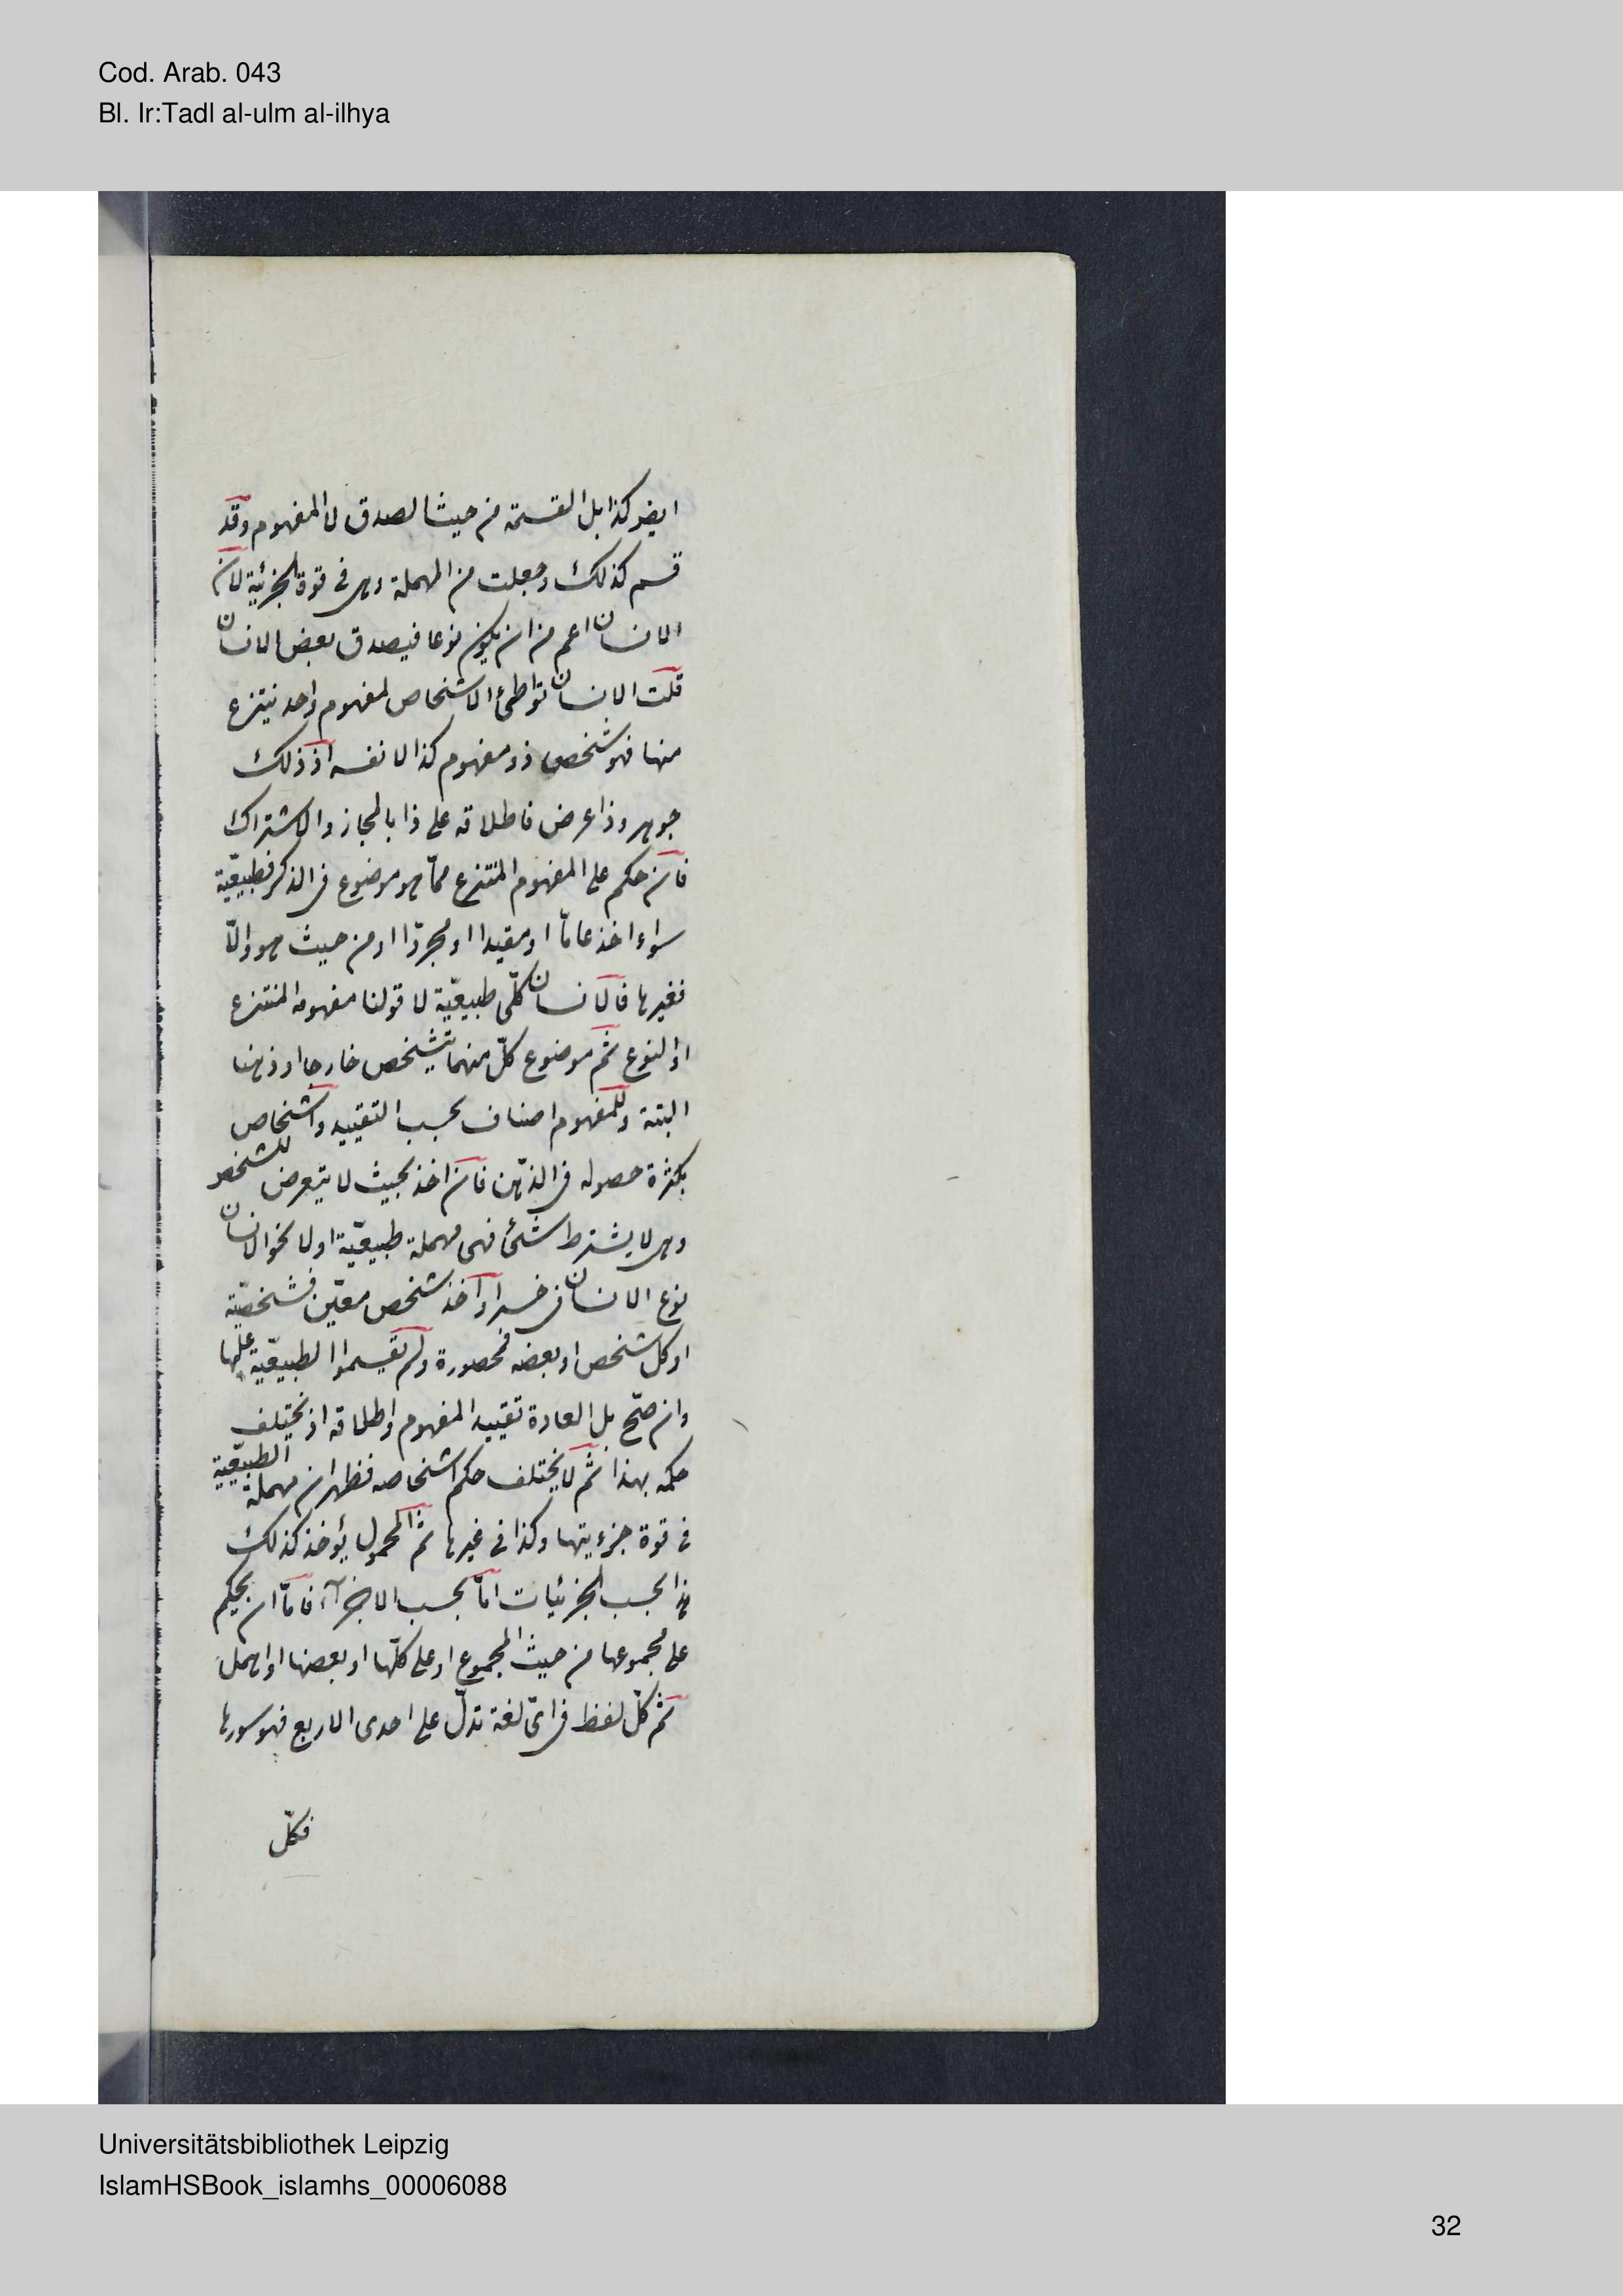 Cod. Arab. 043
Bl. Ir:Tadl al-ulm al-ilhya
ايضر كذا بل القسمة من حيث الصدق لا المفهوم وقد
قسم كذلك وجعلت من المهملة وهى فى قوة الجزئية لان
الانسان اعم من ان يكون نوعا فيصدق بعض الانسان
قلت الانسان تواطئ الاشخاص لمفهوم واحد ينتزع
منها فهو شخص ذو مفهوم كذا لا نفسه اذ ذلك
جوهر وذا عرض فاطلاقه على ذا بالمجاز والاشتراك
فان حكم على المفهوم المنتزع مما هو موضوع فى الذكر فطبيعيّة
سواء اخذ عامّا او مقيدا او مجردّا او من حيث هو والّا
فغيرها فالانسان كلّى طبيعيّة لا قولنا مفهومه المنتزع
او النوع ثم موضوع كلّ منهما يتشخص خارجا او ذهنا
البتة وللمفهوم اصناف بحسب التقييد واشخاص
بكثرة حصوله فى الذهن فان اخذ بحيث لا يتعرض للشخص
وهى لا يشترط شئ فهى مهملة طبيعيّة اولا نحو الانسان
نوع الانسان فى خسر او اخذ شخص معيّن فشخصيّة
او كل شخص او بعضه فمحصورة ولم يقسموا الطبيعيّة عليها
وان صحّ بل العادة تقييد المفهوم واطلاقه اذ يختلف
حكمه بهذا ثم لا يختلف حكم اشخاصه فظهر ان مهملة الطبيعيّة
فى قوة جزءيتها وكذا فى غيرها ثم المحمول يؤخذ كذلك
هذا بحسب الجزئيات امّا بحسب الاجزآء فامّا ان يحكم
على مجموعها من حيث المجموع او على كلّها او بعضها او اهمل
ثم كلّ لفظ فى اىّ لغة تدلّ على احدى الاربع فهو سورها
فكلّ
Universitätsbibliothek Leipzig
IslamHSBook_islamhs_00006088
32